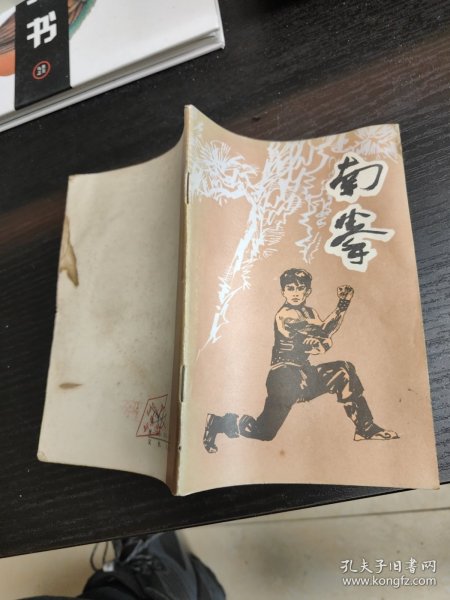 书
南拳
孔夫子旧书网
www.kongfz.com